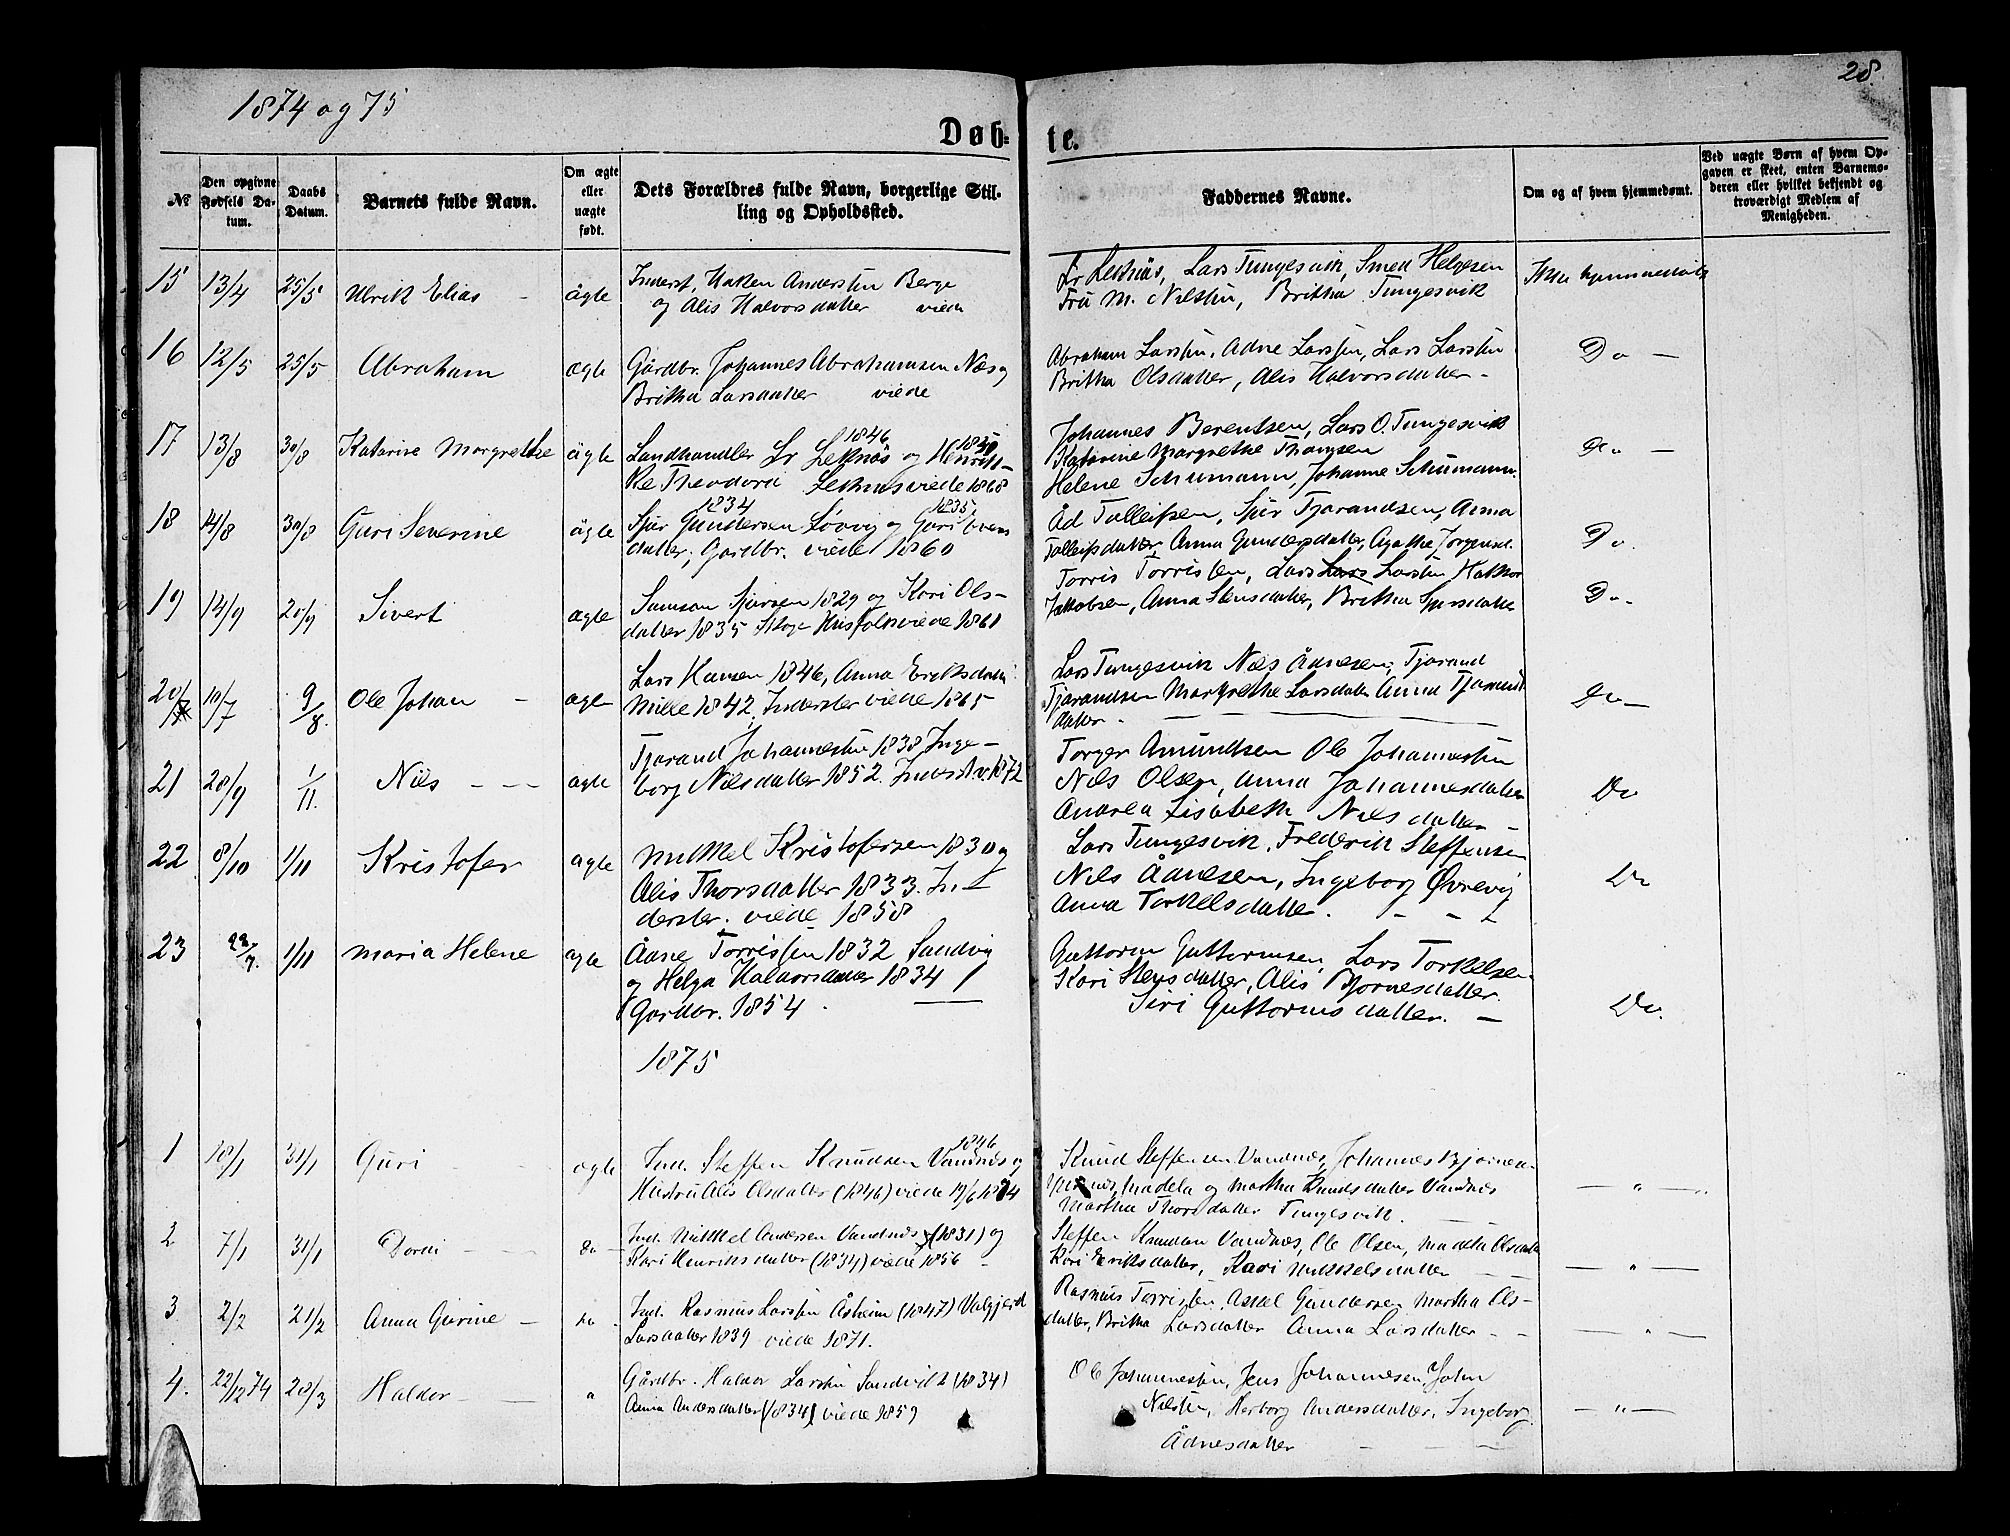 1874 og 75
28.
Døb-
te.
№
Den opgivne Fødsels Da-
tum.
Daabs Datum.
Barnets fulde Navn.
Om ægte eller uægte født.
Dets Forældres fulde Navn, borgerlige Stil-
ling og Opholdssted.
Faddernes Navne.
Om og af hvem hjemmedømt.
Ved uægte Børn af hvem Op-
gaven er skeet, enten Barnemo-
deren eller hvilket bekjendt og
troværdigt Medlem af
Menigheden.
15 13/4 25/5 Ulrik Elias - ägte Inderst, Haken Andersen Berge
og Alis Halvorsdatter viede
Lr Leknäs, Lars Tungesvik, Smed Helgesen
Fru M. Nilssen, Britha Tungesvik
Ikke hjemmedøbt
16 12/5 25/5 Abraham ægte Gårdbr. Johannes Abrahamsen Næs og
Britha Larsdatter viede
Abraham Larssen, Adne Larssen, Lars Larssen
Britha Olsdatter, Alis Halvorsdatter -
Do -
17 13/8 30/8 Katarine Margrethe ägte Landhandler Lr Leknäs 1846 og Henrik-
ke Theodora Leknes viede 1868
Johannes Berentsen, Lars O. Tungesvik
Katarine Margrethe Thomsen
Helene Schumann, Johanne Schumann.
Do -
18 14/8 30/8 Guri Severine ägte Sjur Gundersen 1834 Løvvig og Guri 1835
datter, Gardbr. viede 1860
Åd Tolleifsen, Sjur Tjørandsen, Anna
Tolleifsdatter, Anna Gundersdatter, Agathe Jørgensd.
Do.
19 14/9 20/9 Sivert ægte Samson Sjursen 1829 og Kari Ols-
datter 1835 Husfolk viede 1861
Torris Torrissen, Lars Lars Larssen Haktor
Jakobsen, Anna Stensdatter, Britha Sjursdatter
Do.
20 10/7 9/8. Ole Johan - agte Lars Hansen 1846, Anna Eriksdatter
1842 Inderster viede 1865
Lars Tungesvik Nils Ådnesen, Tjørand
Tjørandsen Margrethe Larsdatter Anna Tjørands
datter -
Do -
21 28/9 1/11. Nils - - - agte Tjørand Johannessen 1838 Inge-
borg Nilsdatter 1852. Inderst v. 1872
Torger Amundsen Ole Johannessen
Nils Olsen, Anna Johannesdatter
Andrea Lisabeth Nilsdatter -
Do
22 8/10 1/11 Kristofer agte Mikkel Kristofersen 1830 og
Alis Thorsdatter 1833. In-
derster. viede 1858
Lars Tungesvik, Frederik Steffensen
Nils Ådnesen, Ingeborg Øvrevig
Anna Torkelsdatter. - -
Do
23 22/9. 1/11 Maria Helene agte Ådne Torrissen 1832 Sandvig
og Helga Haldorsdatter 1834
Gardbr. 1854.
Guttorm Guttormsen, Lars Torkelsen
Kari Stensdatter, Alis Bjørnesdatter
Siri Guttormsdatter. -
Do.
1875
1 18/1 31/1 Guri - - agte Ind. Steffen Knudsen Vandnes 1846 og
Hustru Alis Olsdatter (1846) viede 19/6 1874
Knud Steffensen Vandnæs, Johannes Bjørnen-
Madela og Martha Knudsdatter Vandnæs
Martha Thorsdatter Tungesvik.
- " -
2 7/1 31/1 Dordi - - - do - Ind. Mikkel Andersen Vandnäs (1831) og
Kari Henriksdatter (1834) viede 1856 -
Steffen Knudsen Vandnæs, Ole Olsen, Madela Olsdatter
Kari Eriksdatter, Kari Mikkelsdatter - -
- " -
3 2/2 21/2 Anna Gurine - do - Ind. Rasmus Larssen Åsheim (1847) Valgjerd
Larsdatter 1839 viede 1871.
Rasmus Torrissen, Askel Gundersen Martha Ols-
datter, Britha Larsdatter Anna Larsdatter - -
- " -
4. 22/12 74 28/3 Haldor - - " Gårdbr. Haldor Larssen Sandvik (1834)
Anna Andersdatter (1834) viede 1859
Ole Johannessen, Jens Johannesen, John
Nilssen, Herborg Andersdatter, Ingeborg
Ådnesdatter - - -
- " -